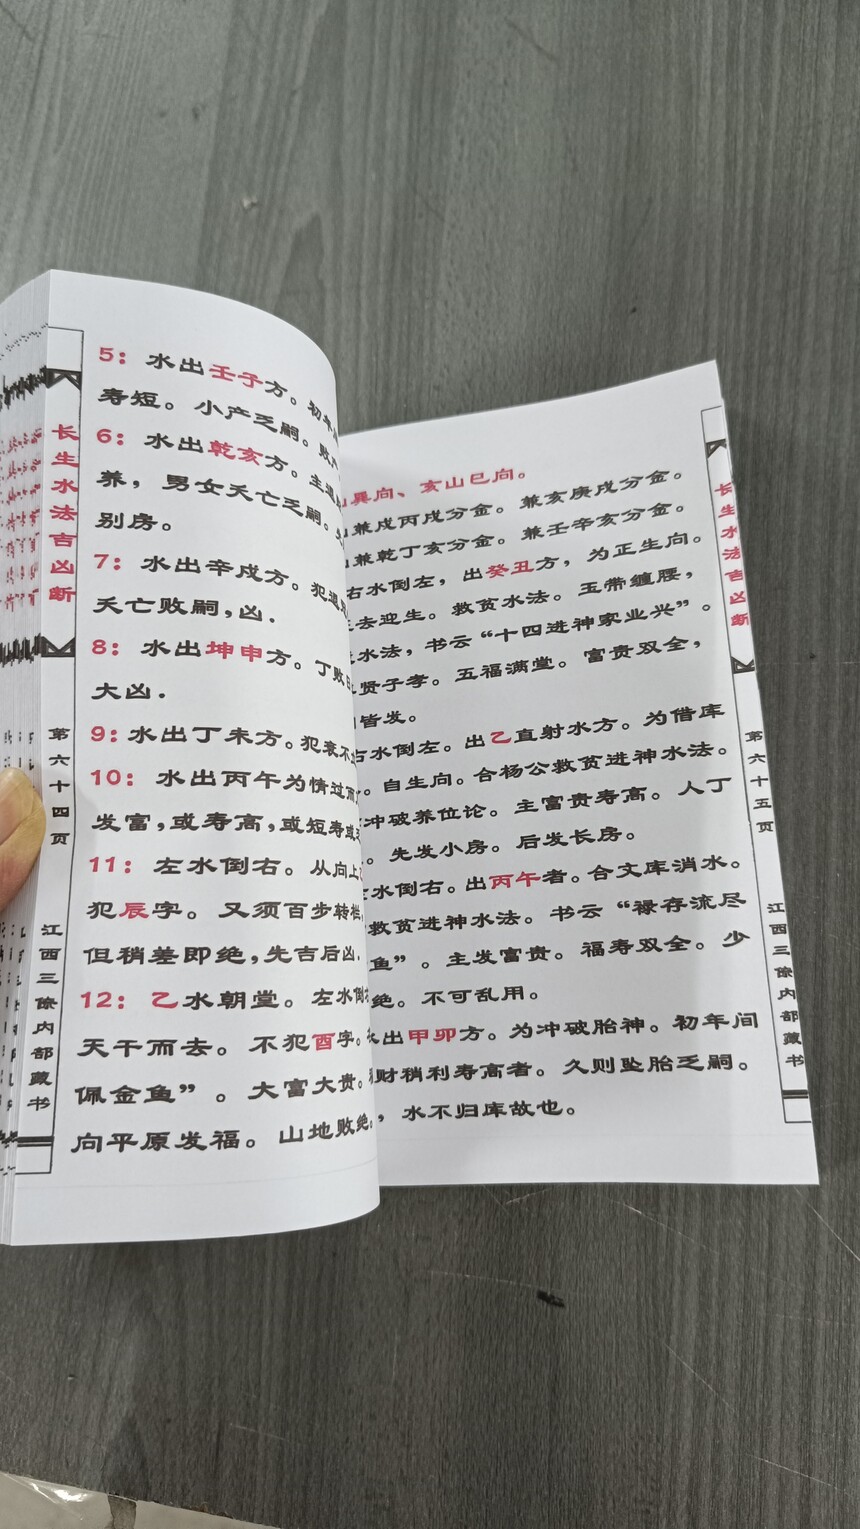 长生水法吉凶断
第六十四页
江西三僚内部藏书
5：水出壬子方。初年
寿短。小产乏嗣。败
6：水出乾亥方。主退
养，男女夭亡乏嗣。
别房。
7：水出辛戌方。犯退
夭亡败嗣，凶．
8：水出坤申方。丁败
大凶．
9：水出丁未方。犯衰不
10：水出丙午为情过而
发富，或寿高，或短寿或
11：左水倒右。从向上
犯辰字。又须百步转栏
但稍差即绝，先吉后凶．
12：乙水朝堂。左水倒
天干而去。不犯酉字。
佩金鱼”。大富大贵。
向平原发福。山地败绝。
巽向、亥山巳向。
兼戌丙戌分金。兼亥庚戌分金。
兼乾丁亥分金。兼壬辛亥分金。
右水倒左，出癸丑方，为正生向。
去迎生。救贫水法。玉带缠腰，
水法，书云“十四进神家业兴”。
贤子孝。五福满堂。富贵双全，
皆发。
右水倒左。出乙直射水方。为借库
。自生向。合杨公救贫进神水法。
冲破养位论。主富贵寿高。人丁
。先发小房。后发长房。
水倒右。出丙午者。合文库消水。
救贫进神水法。书云“禄存流尽
鱼”。主发富贵。福寿双全。少
绝。不可乱用。
出甲卯方。为冲破胎神。初年间
财稍利寿高者。久则坠胎乏嗣。
，水不归库故也。
长生水法吉凶断
第六十五页
江西三僚内部藏书